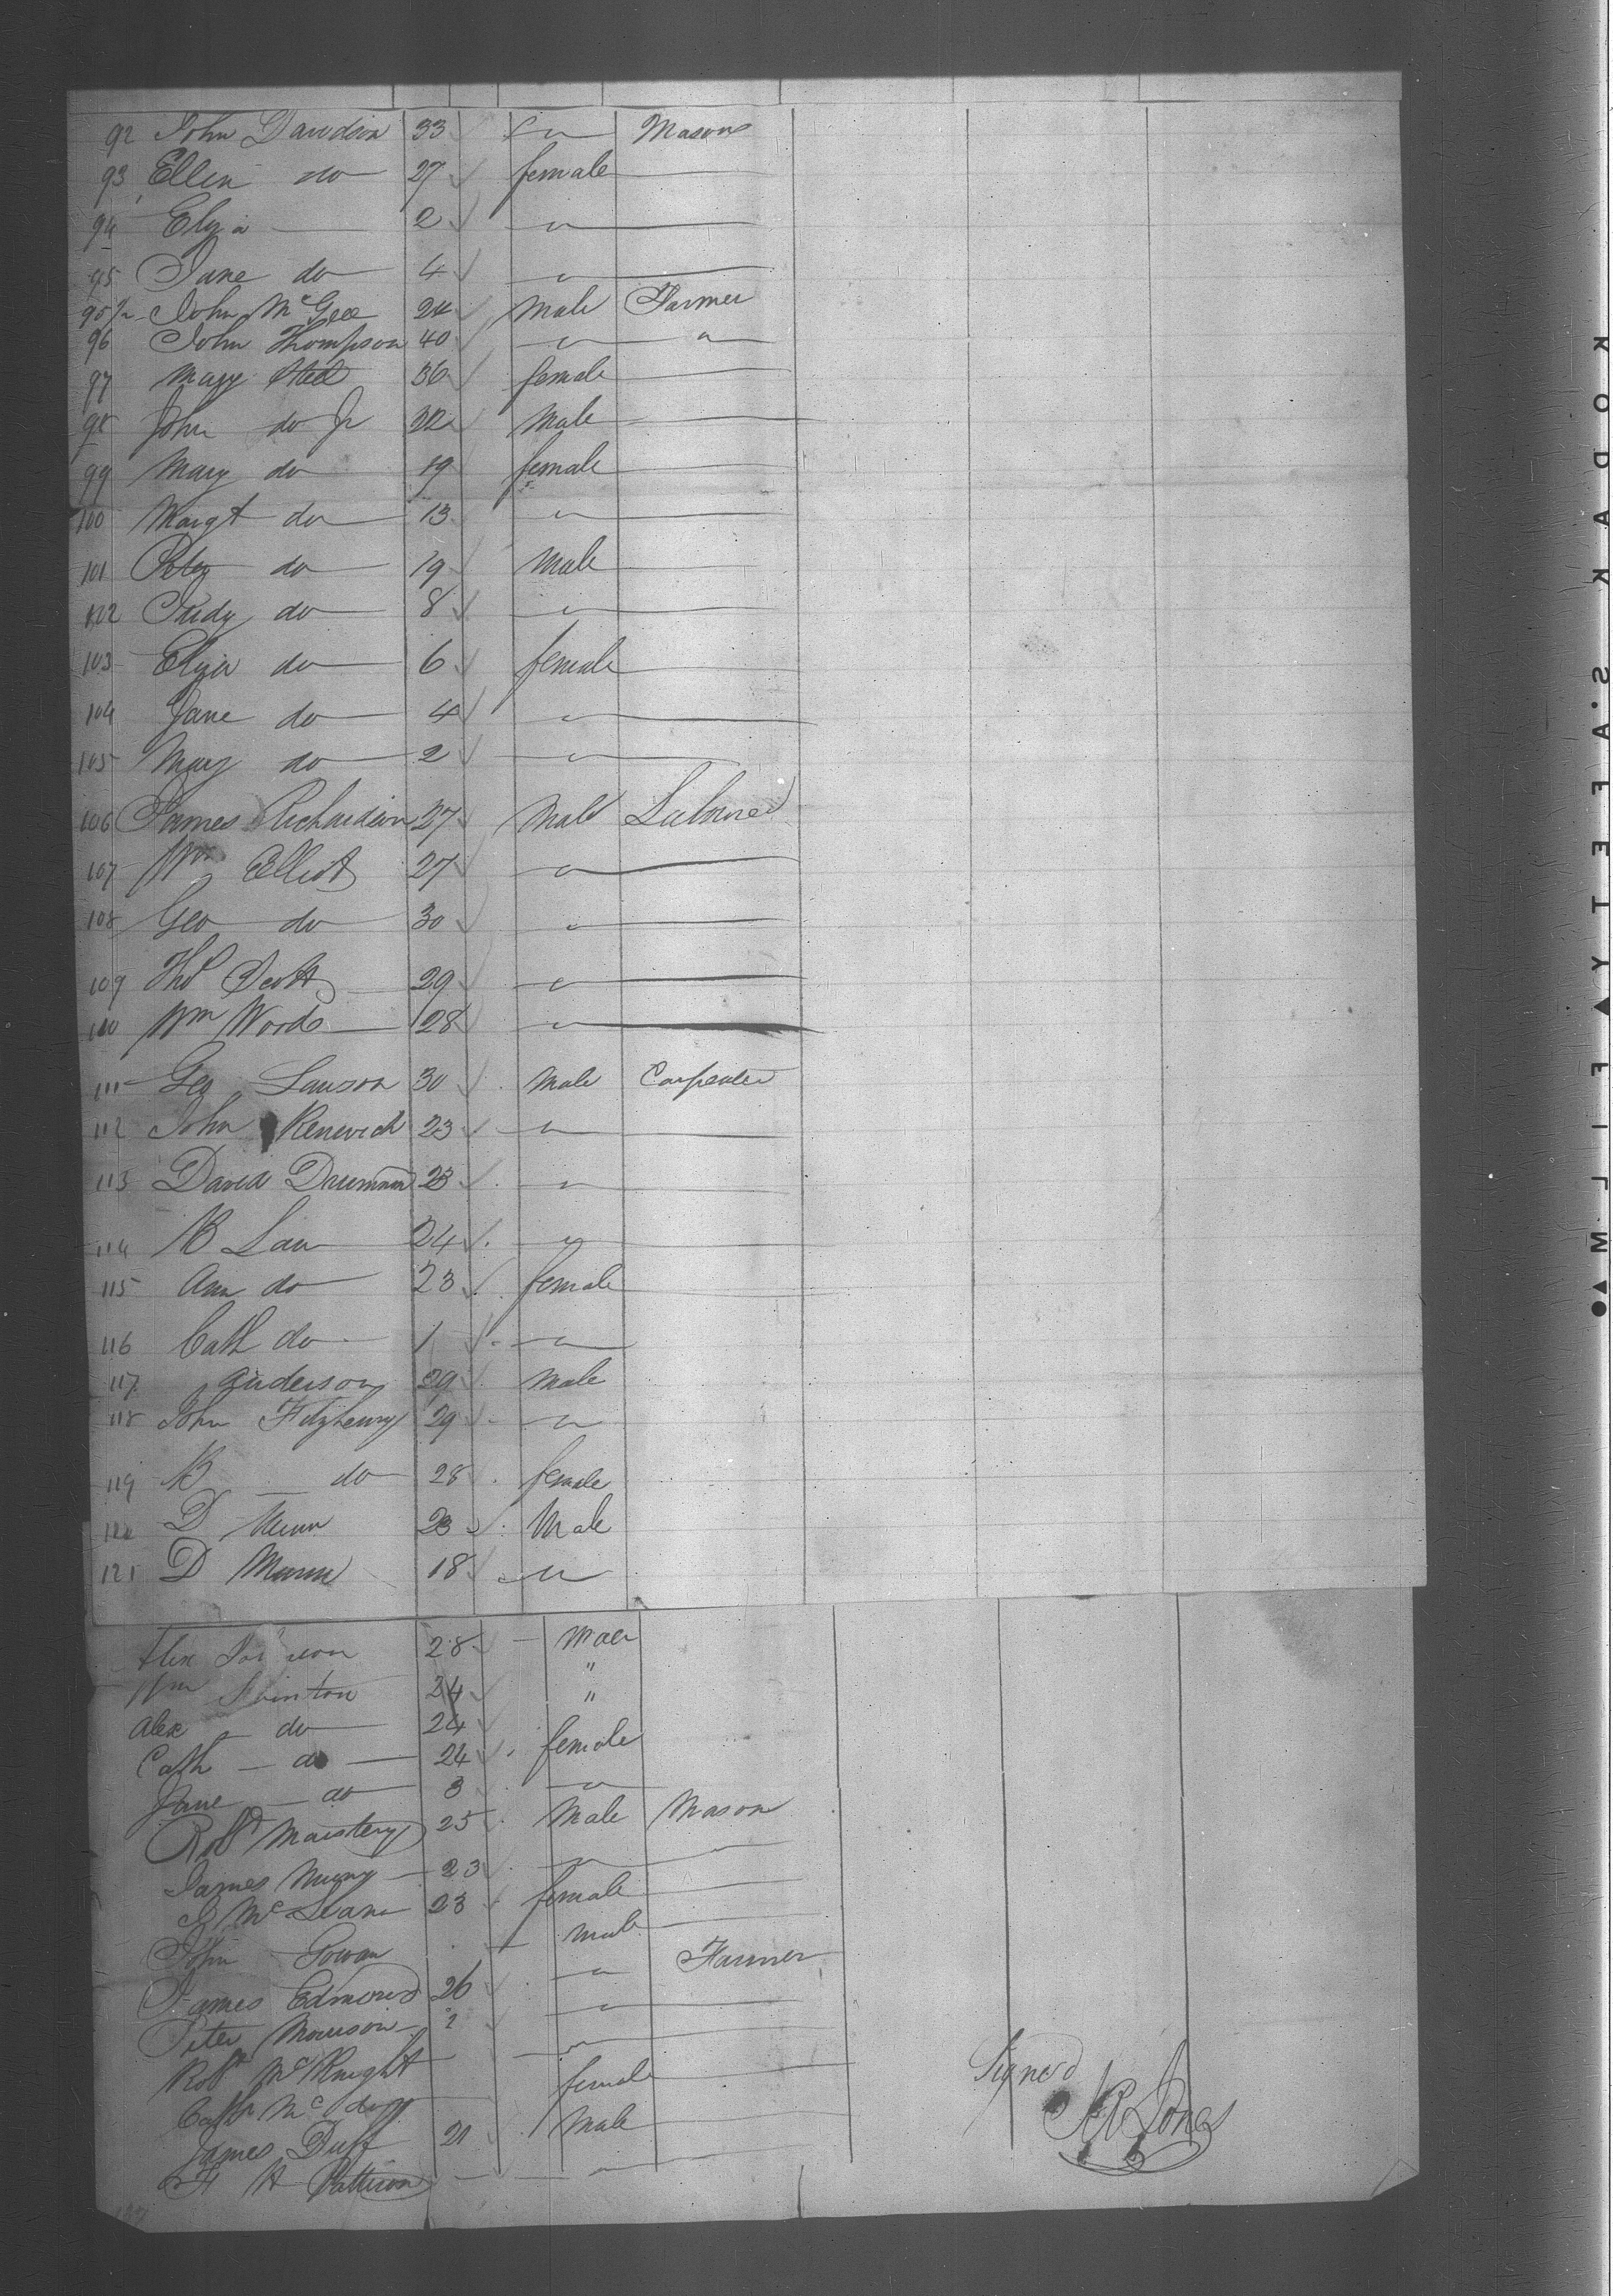 92 John Davidson 33 " Mason
93 Ellen do 27 female
94 Eliza 2 "
95 Jane do 4 "
95½ John McGee 24 Male Farmer
96 John Thompson 40 " "
97 Mary Steel 36 female
98 John do Jr 22 Male
99 Mary do 19 female
100 Margt do 13 "
101 do 19 Male
102 Judy do 8 "
103 Eliza do 6 female
104 Jane do 4 "
105 Mary do 2 "
106 James Richardson 27 Male Labourer
107 Wm Elliot 27 "
108 Geo do 30 "
109 Thos Scott 29 "
110 Wm Woods 28 "
111 Geo Lawson 30 Male Carpenter
112 John Renwick 23 "
113 David Drummon 23 "
114 Law 24 "
115 Ann do 23 female
116 Cath do 1 "
117 Anderson 29 Male
118 John Fitzhenry 29 "
119 do 28 female
120 D 23 Male
121 D Munn 18 "
Alex 28 Male
Wm Swinton 24 "
Alex do 24 "
Cath do 24 female
Jane do 3 "
Robt 25 Male Mason
James 23 " "
McLean 23 female
John Gowan male
James Edmond 26 " Farmer
Peter Morrison "
Robt McKnight "
Cath Mc do female
James Duff 21 Male
H Pattison "
Signed
Jones
KODAK·S·A·F·E·T·Y FILM